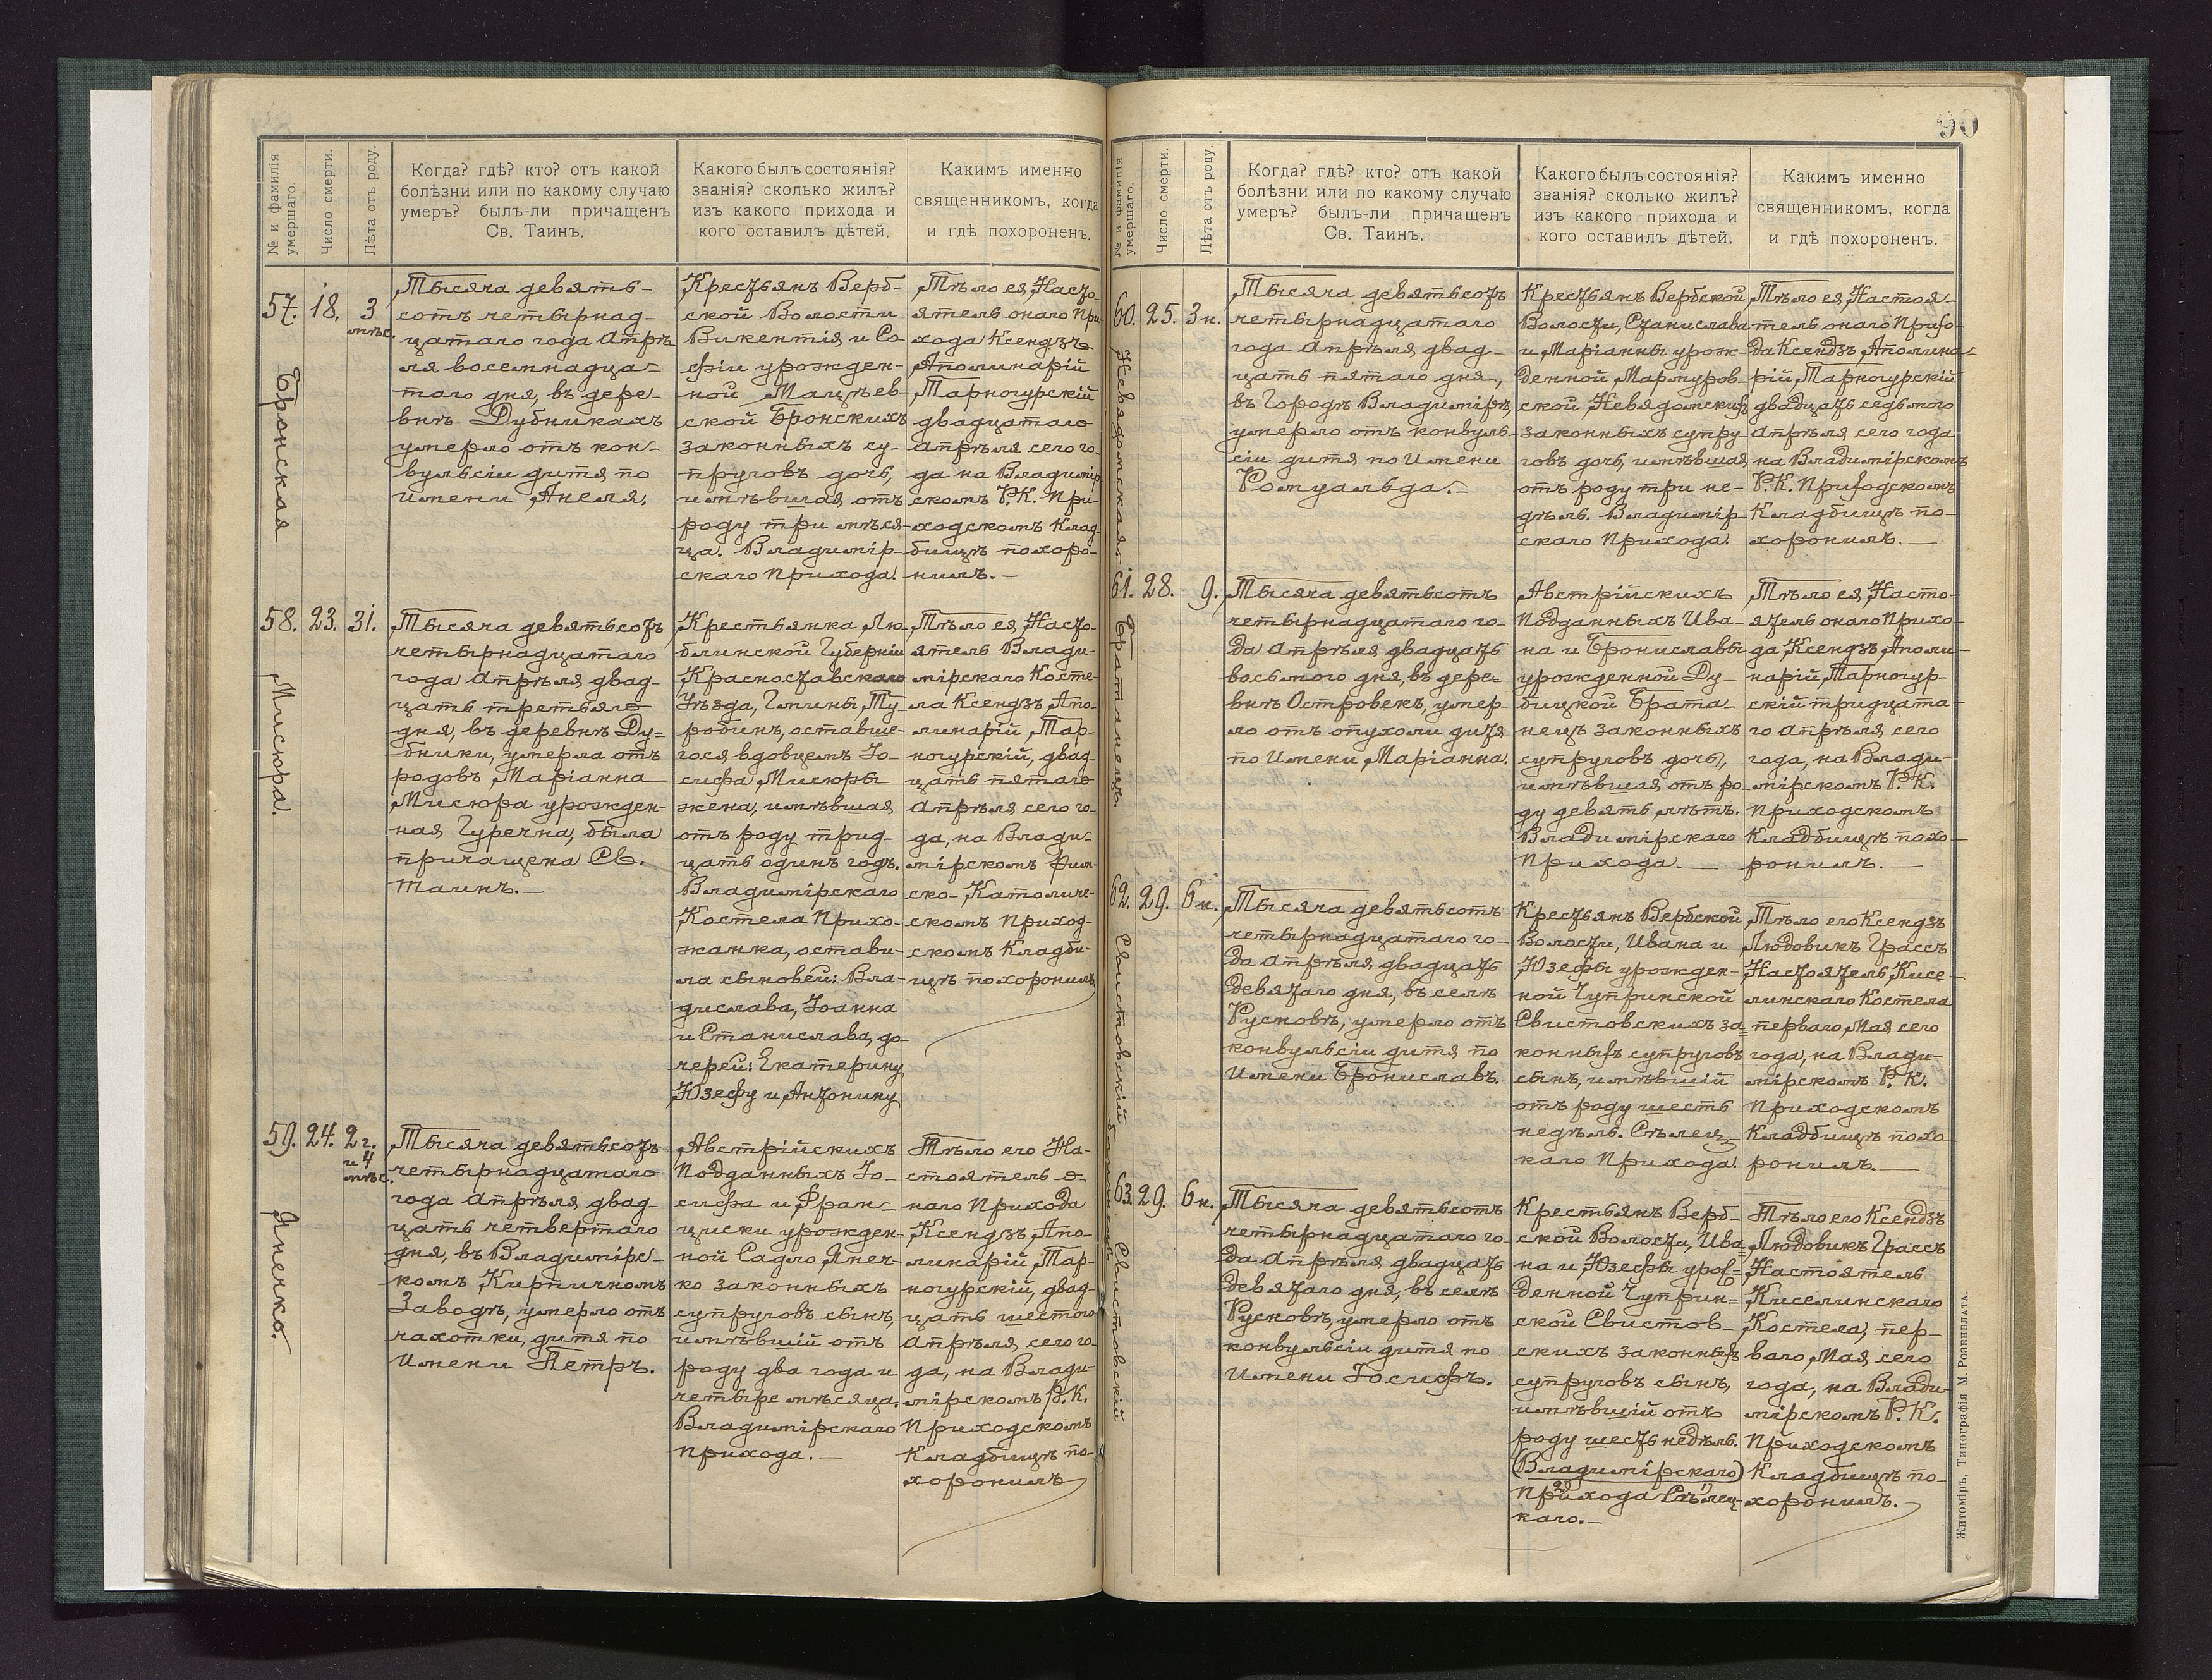 90
№ и фамилія
умершаго.
Число смерти.
Лѣта отъ роду.
Когда? гдѣ? кто? отъ какой
болѣзни или по какому случаю
умеръ? былъ-ли причащенъ
Св. Таинъ.
Какого былъ состоянія?
званія? сколько жилъ?
изъ какого прихода и
кого оставилъ дѣтей.
Какимъ именно
священникомъ, когда
и гдѣ похороненъ.
57.
Бронская
18.
3
мѣс.
Тысяча девять-
сотъ четырнад-
цатаго года Апрѣ
ля восемнадца-
таго дня, въ дере-
внѣ Дубникахъ
умерло отъ кон-
вульсіи дитя по
имени Анеля.
Крестьянъ Верб-
ской Волости
Викентія и Со-
фіи урожден-
ной Мацѣев-
ской Бронскихъ
законныхъ су-
пруговъ дочь,
имѣвшая отъ
роду три мѣся-
ца. Владимір-
скаго прихода.
Тѣло ея, Насто-
ятель онаго При
хода Ксендзъ
Аполинарій
Тарногурскій
двадцатаго
Апрѣля сего го-
да на Владимір-
скомъ Р.К. При-
ходскомъ Клад-
бищѣ похоро-
нилъ.-
58.
Мисюра.
23.
31.
Тысяча девятьсотъ
четырнадцатаго
года Апрѣля двад-
цать третьяго
дня, въ деревнѣ Ду=
бники, умерла отъ
родовъ Маріанна
Мисюра урожден-
ная Гуречна, была
причащена Св.
Таинъ.-
Крестьянка Лю-
блинской Губерніи
Красноставскаго
Уѣзда, Гмины Ту-
робинъ, оставше-
гося вдовцемъ Іо-
сифа Мисюры
жена, имѣвшая
отъ роду трид-
цать одинъ годъ.
Владимірскаго
Костела Прихо-
жанка, остави-
ла сыновей: Вла-
дислава, Іоанна
и Станислава, до-
черей: Екатерину
Юзефу и Антонину
Тѣло ея, Насто-
ятель Влади-
мірскаго Косте-
ла Ксендзъ, Апо-
линарій, Тар-
ногурскій, двад-
цать пятаго
Апрѣля сего го-
да, на Влади-
мірскомъ Рим-
ско-Католиче-
скомъ Приход-
скомъ Кладби-
щѣ похоронилъ
59.
Янечко.
24.
2 г.
и 4
мѣс.
Тысяча девятьсотъ
четырнадцатаго
года Апрѣля двад-
цать четвертаго
дня, въ Владимірс-
комъ Кирпичномъ
Заводѣ, умерло отъ
чахотки, дитя по
имени Петръ.
Австрійскихъ
Подданныхъ Іо-
сифа и Фран-
циски урожден-
ной Садло Янеч-
ко законныхъ
супруговъ сынъ,
имѣвшій отъ
роду два года и
четыре мѣсяца.
Владимірскаго
прихода.-
Тѣло его На-
стоятель о-
наго Прихода
Ксендзъ, Апо-
линарій, Тар-
ногурскій, двад-
цать шестого
Апрѣля, сего го-
да, на Влади-
мірскомъ Р.К.
Приходскомъ
Кладбищѣ по-
хоронилъ
№ и фамилія
умершаго.
Число смерти.
Лѣта отъ роду.
Когда? гдѣ? кто? отъ какой
болѣзни или по какому случаю
умеръ? былъ-ли причащенъ
Св. Таинъ.
Какого былъ состоянія?
званія? сколько жилъ?
изъ какого прихода и
кого оставилъ дѣтей.
Какимъ именно
священникомъ, когда
и гдѣ похороненъ.
60.
Невядомская
25.
3 н.
Тысяча девятьсотъ
четырнадцатаго
года Апрѣля двад-
цать пятаго дня,
въ Городѣ Владимірѣ,
умерло отъ конвуль-
сіи дитя по имени
Ромуальда.-
Крестьянъ Вербской
Волости, Станислава
и Маріанны урож-
денной Мармуров-
ской Невядомскихъ
законныхъ супру
говъ дочь, имѣвшая
отъ роду три не-
дѣль. Владимір-
скаго Прихода.
Тѣло ея, Настоя-
тель онаго Прихо-
да Ксендзъ Аполина-
рій, Тарногурскій
двадцать седьмого
Апрѣля сего года
на Владимірскомъ
Р.К. Приходскомъ
Кладбищѣ по-
хоронилъ.-
61.
Братанецъ.
28.
9.
Тысяча девятьсотъ
четырнадцатаго го-
да Апрѣля двадцать
восьмого дня, въ дере-
внѣ Островекъ, умер
ло отъ опухоли дитя
по Имени Маріанна.
Австрійскихъ
Подданныхъ Ива-
на и Брониславы
урожденной Ду-
бицкой Брата-
нецъ законныхъ
супруговъ дочь,
имѣвшая, отъ ро-
ду девять лѣтъ.
Владимірскаго
Прихода.-
Тѣло ея, Насто-
ятель онаго Прихо-
да, Ксендзъ, Аполи-
нарій, Тарногур-
скій тридцата-
го Апрѣля сего
года, на Влади-
мірскомъ Р.К.
Приходскомъ
Кладбищѣ похо-
ронилъ.-
62.
Свистовскій
29.
6 н.
Тысяча девятьсотъ
четырнадцатаго го-
да Апрѣля двадцать
девятаго дня, въ селѣ
Русновѣ, умерло отъ
конвульсіи дитя по
Имени Брониславъ.
Крестьянъ Вербской
Волости, Ивана и
Юзефы урожден-
ной Чупринской
Свистовскихъ за=
конныхъ супруговъ
сынъ, имѣвшій
отъ роду шесть
недѣль. Сѣлец-
каго Прихода.
Тѣло его Ксендзъ
Людовикъ Грассъ
Настоятель, Кисе-
линскаго Костела
перваго Мая сего
года, на Влади-
мірскомъ Р.К.
Приходскомъ
Кладбищѣ похо-
ронилъ.-
63.
Свистовскій
29.
6 н.
Тысяча девятьсотъ
четырнадцатаго го-
да Апрѣля, двадцать
девятаго дня, въ селѣ
Русновѣ, умерло отъ
конвульсіи дитя по
Имени Іосифъ.
Крестьянъ Верб-
ской Волости, Ива=
на и Юзефы урож-
денной Чуприн=
ской Свистов-
скихъ законныхъ
супруговъ сынъ,
имѣвшій отъ
роду шесть недѣль.
(Владимірскаго)
Прихода Сѣлец-
каго.-
Тѣло его Ксендзъ
Людовикъ Грассъ
Настоятель
Киселинскаго
Костела, пер-
ваго, Мая сего
года, на Влади-
мірскомъ Р.К.
Приходскомъ
Кладбищѣ по-
хоронилъ.
Житоміръ, Типографія М. Розенблата.